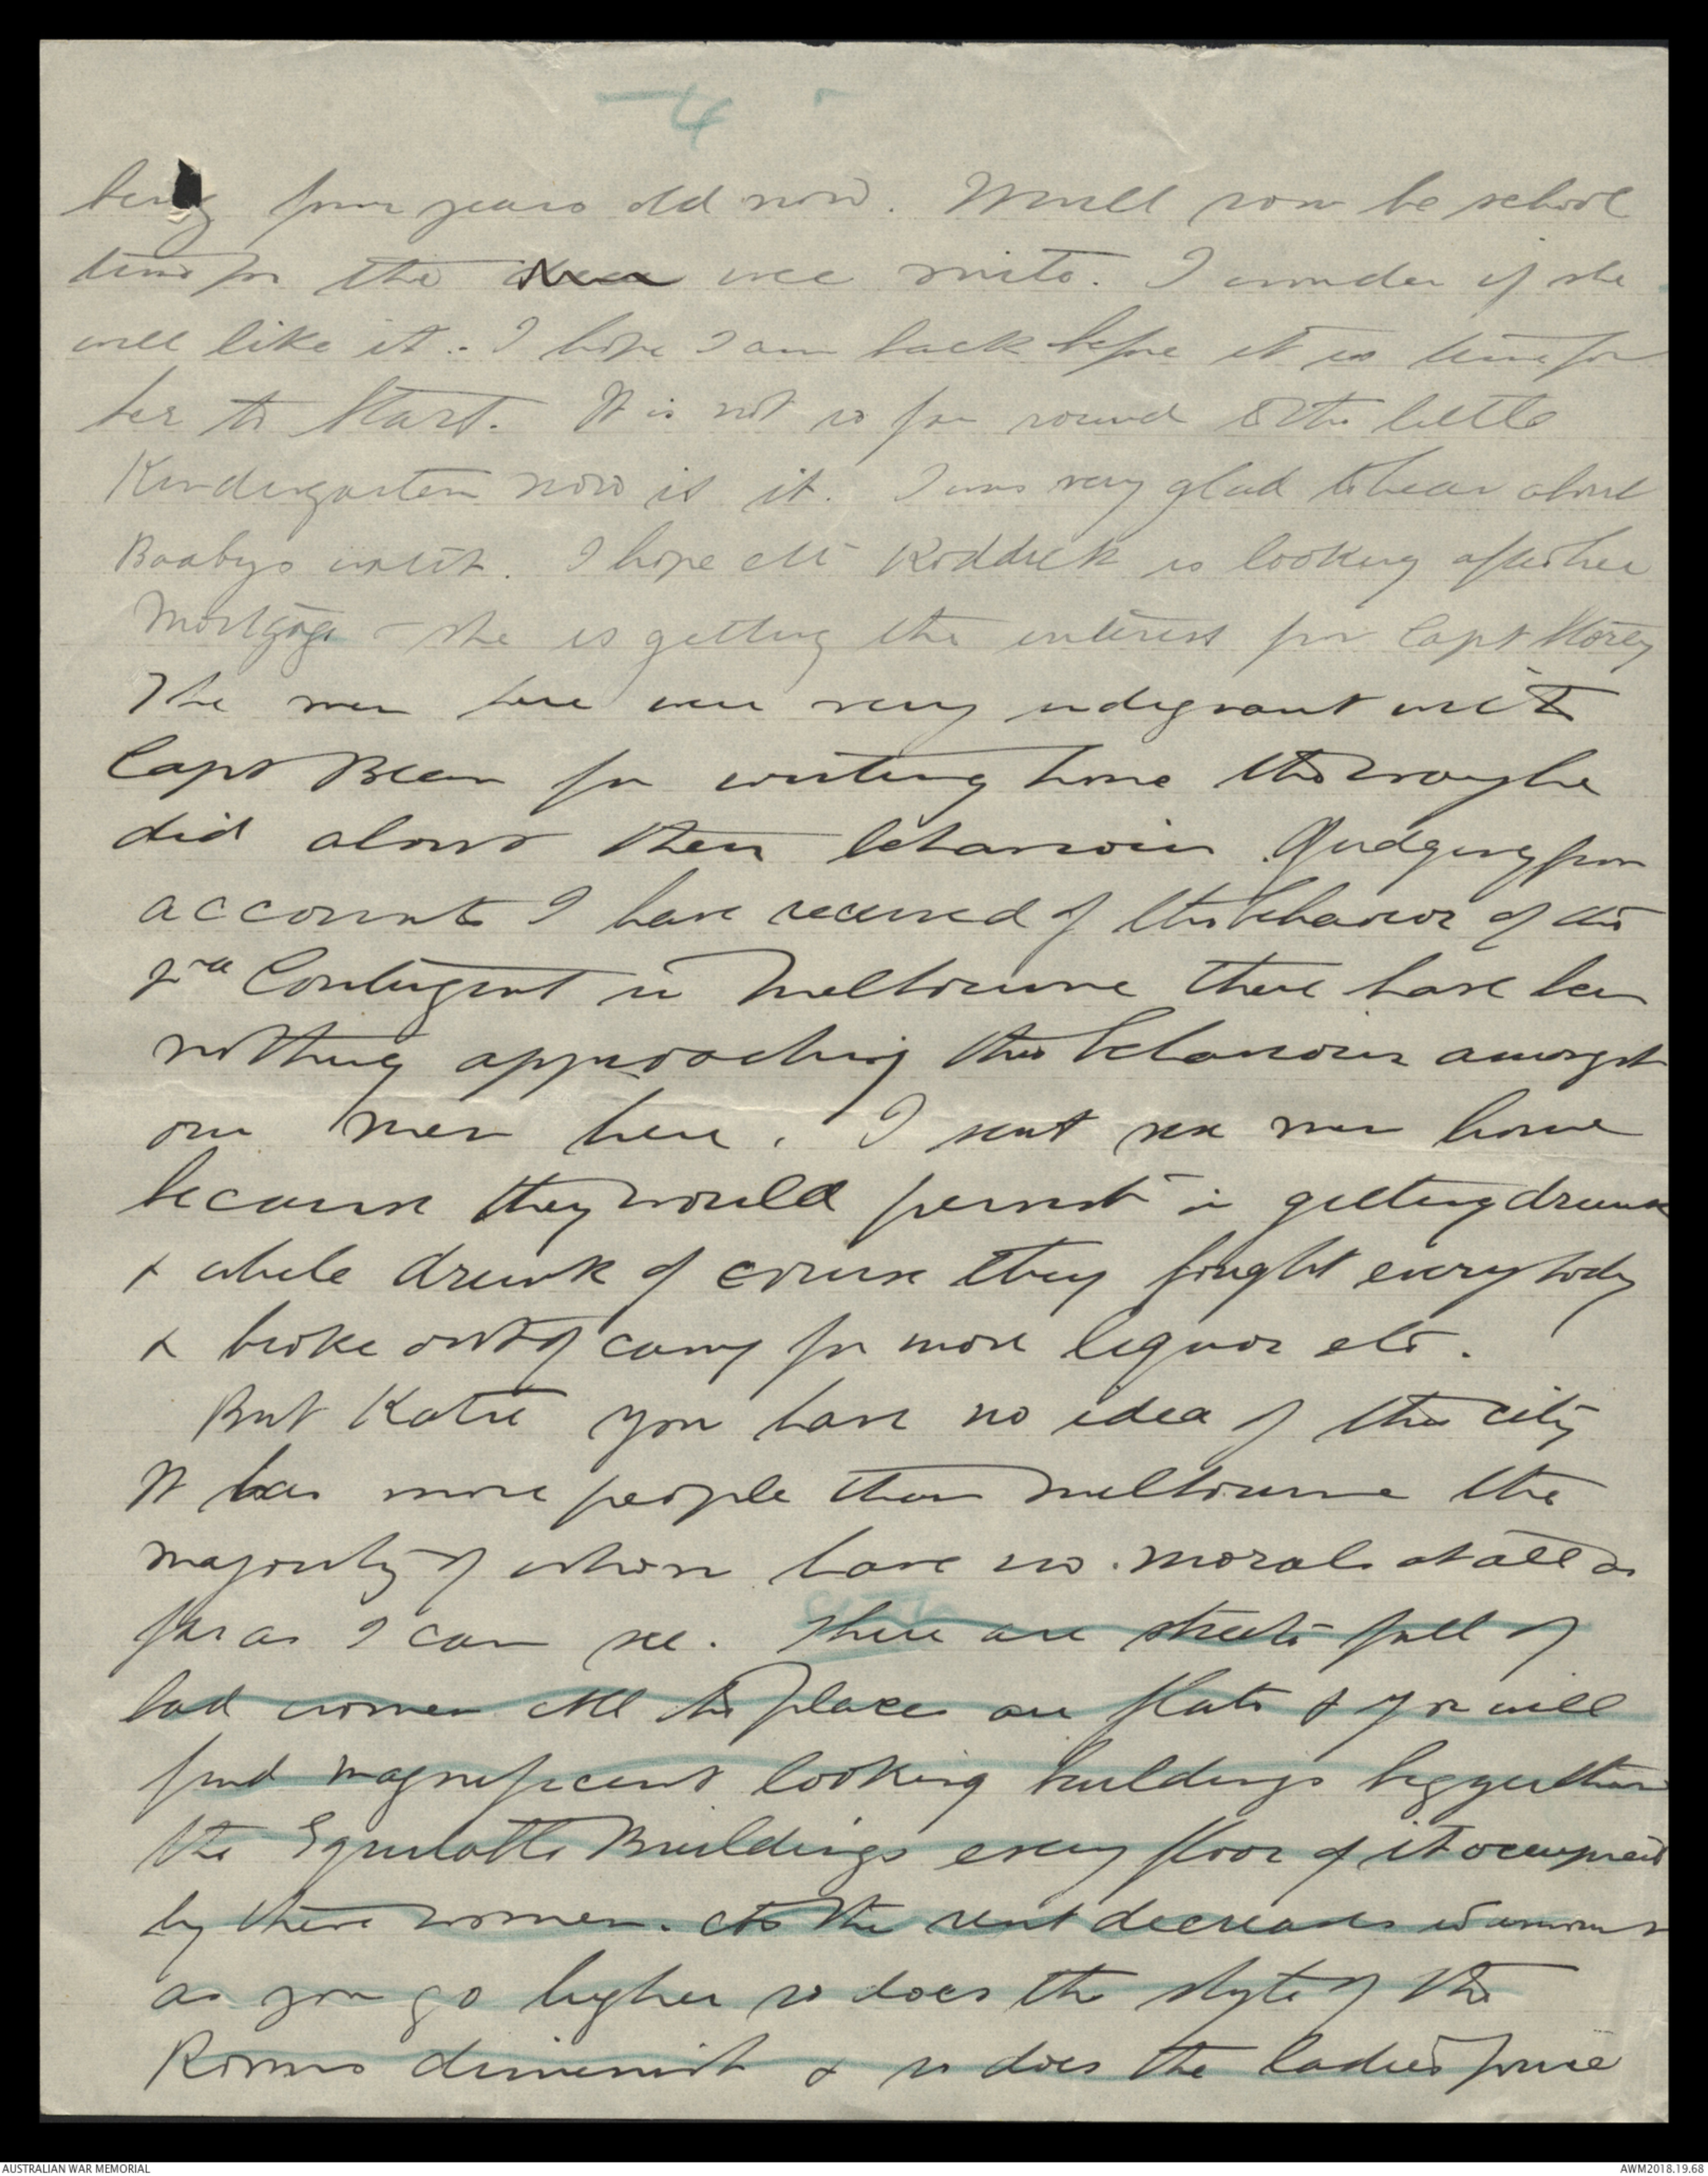 - 4 -
being four years old now. Will soon be school
time for the wee mite. I wonder if she
will like it. I hope I am back before it is time for
her to start. It is not so far round to the little
Kindergarten now is it. I was very glad to hear about
Baabys visit. I hope Mr Roddick is looking after her
Mortgage - she is getting the interest from Capt Storey
The men here were very indignant with
Capt Bean for writing home the way he
did about their behaviour. Judging from
accounts I have received of the behavior of the
2nd Contingent in Melbourne there have been
nothing approaching this behaviour amongst
our men here. I sent six men home
because they would persist in getting drunk
& while drunk of course they fought everybody
& broke out of camp for more liquor etc.
But Katie you have no idea of this city
It has more people than Melbourne the
majority of whom have no morals at all as
far as I can see. There are streets full of
bad women All the places are flats & you will
find magnificent looking buildings bigger than
the Equitable Buildings every floor of it occupied
by these women. As the rent decreases in amount
as you go higher so does the style of the
Rooms diminish & so does the ladies price
AUSTRALIAN WAR MEMORIAL
AWM2018.19.68